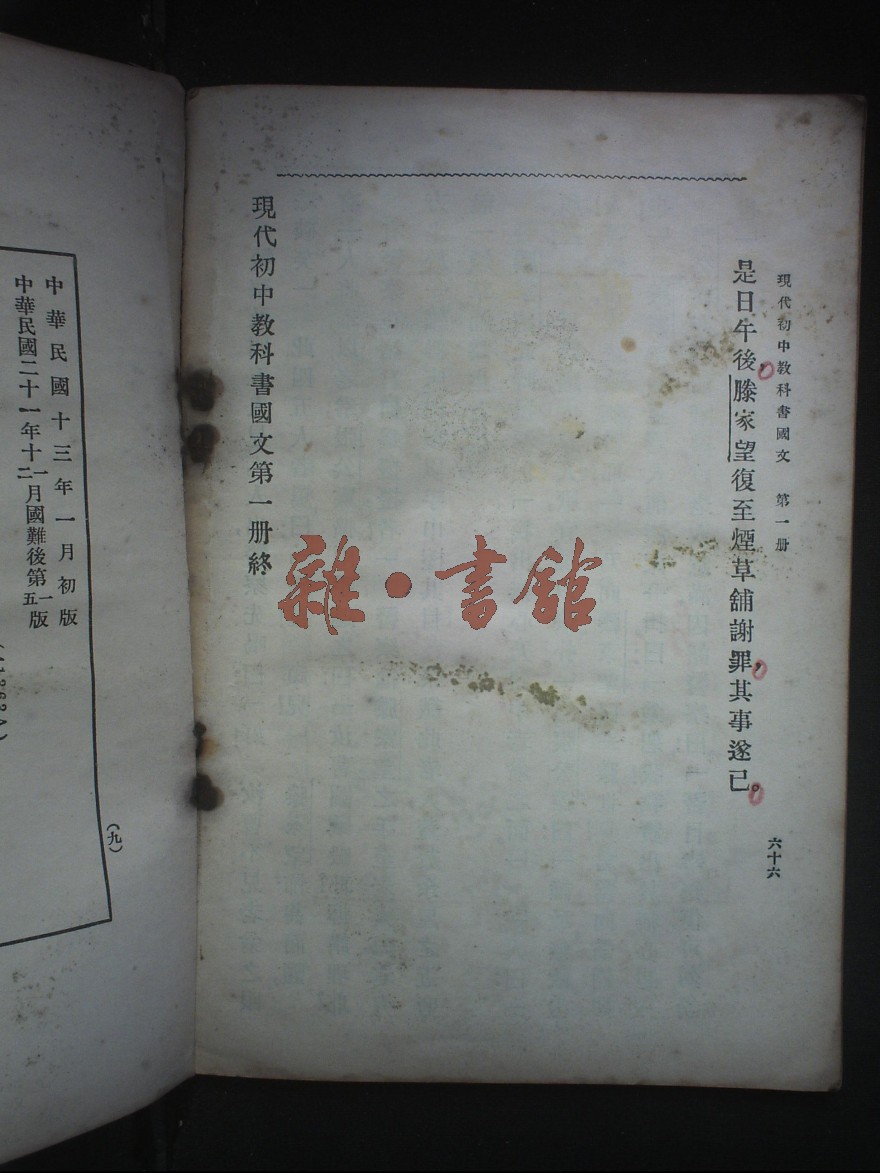 現代初中教科書國文　第一册
六十六
是日午後，滕家望復至煙草舖謝罪，其事遂已。
現代初中教科書國文第一册終
雜・書舘
中華民國十三年一月初版
中華民國二十一年十二月國難後第一版
(九)